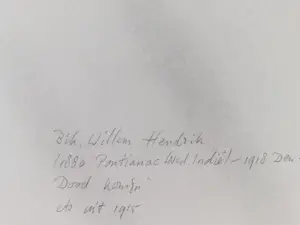 Bik, Willem Hendrik
(1880 Pontianac Ned Indië) - 1918 Den
Dood konijn
ets uit 1915